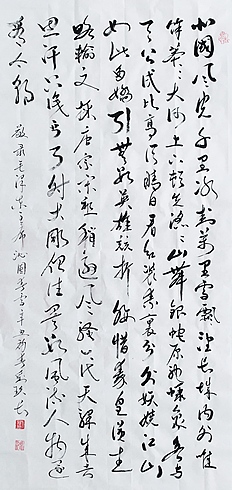 北國風光千里冰封萬里雪飄望長城内外惟
餘莽莽大河上下頓失滔滔山舞銀蛇原馳蠟象欲与
天公試比高須晴日看紅裝素裹分外妖嬈江山
如此多嬌引無數英雄競折腰惜秦皇漢武
略輸文採唐宗宋祖稍遜風騷一代天驕成吉
思汗只識彎弓射大雕俱往矣數風流人物還
看今朝
敬录毛泽东主席沁園春雪辛丑